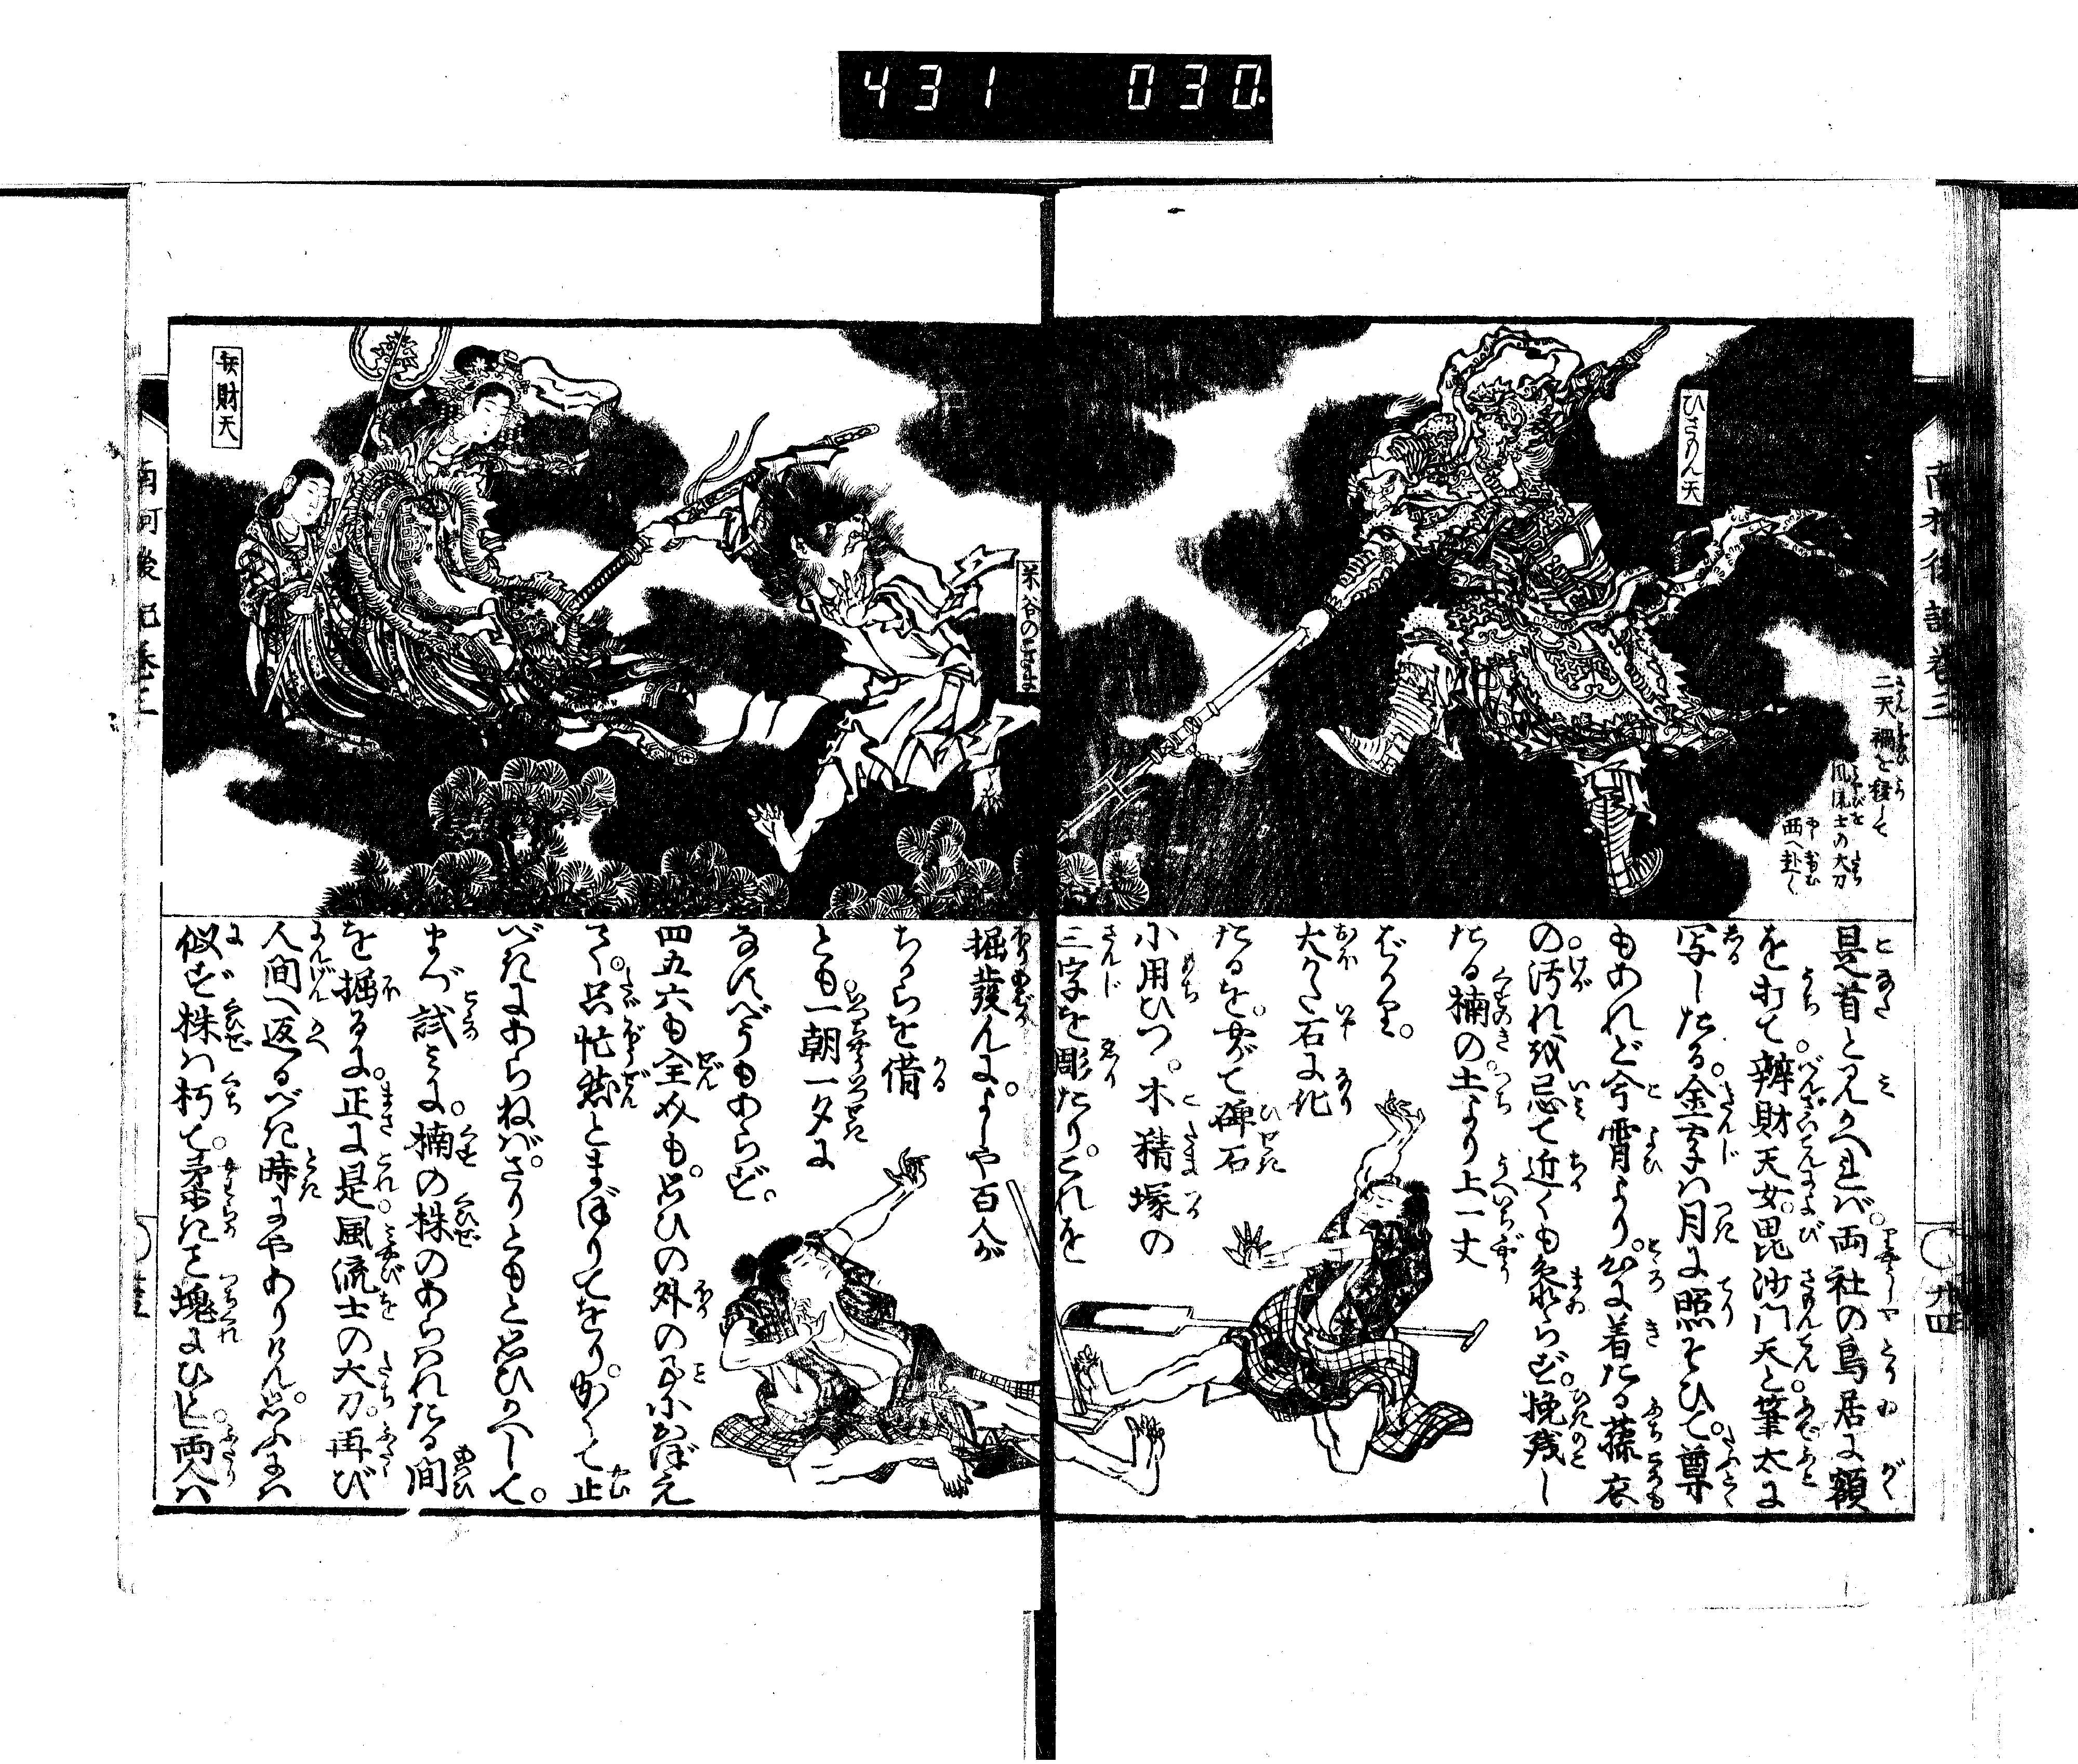 431 030
南柯後記巻三
ひさもん天
二天禍を穰して
風流士の大刀
西へ赴く
是首と見かへれバ。両社の鳥居に額
を打て。辨財天女。毘沙門天と筆太に
写したる。金字ハ月に照そひて。尊
もあれど今宵より。身に着たる藤衣
の。汚れを忌て近くも参らず。挽残し
たる楠の。土より上一丈
ばかり。
大かた石に化
たるを。やがて碑石
小用ひつ。木精塚の
三字を彫たり。これを
米谷の
辨財天
掘發んに。よしや百人が
ちからを借
とも一朝一夕に
なるべうもあらず。
四五六も全次も。思ひの外の事におぼえ
て。只忙然とまぼりてをり。かくて止
べきにあらねバ。さりともと思ひかへして。
まづ試みに。楠の株のあらハれたる間
を掘るに。正に是。風流士の大刀。再び
人間へ返るべき時にやありけん。思ふにハ
似ず株ハ朽て。柔かき塊にひとし。両人ハ
南柯後記巻三